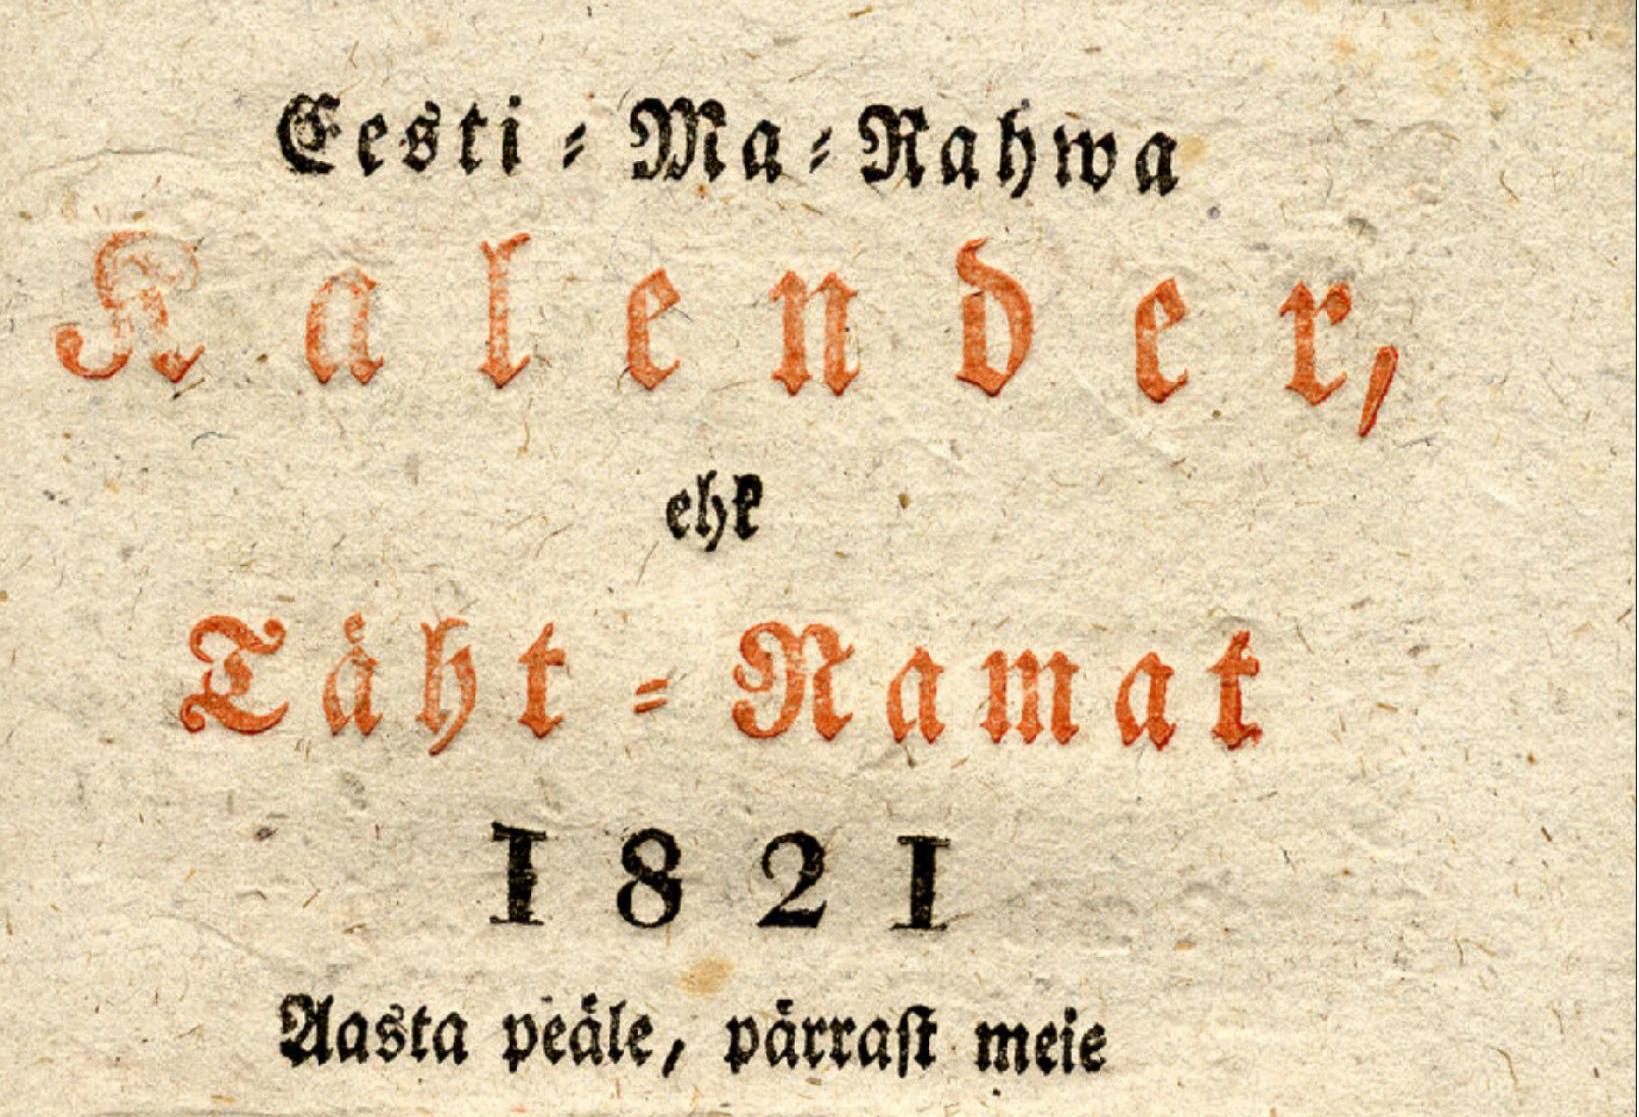 Eesti-Ma-Rahwa
Kalender,
ehk
Täht-Ramat
1821
Aasta peäle, pärrast meie